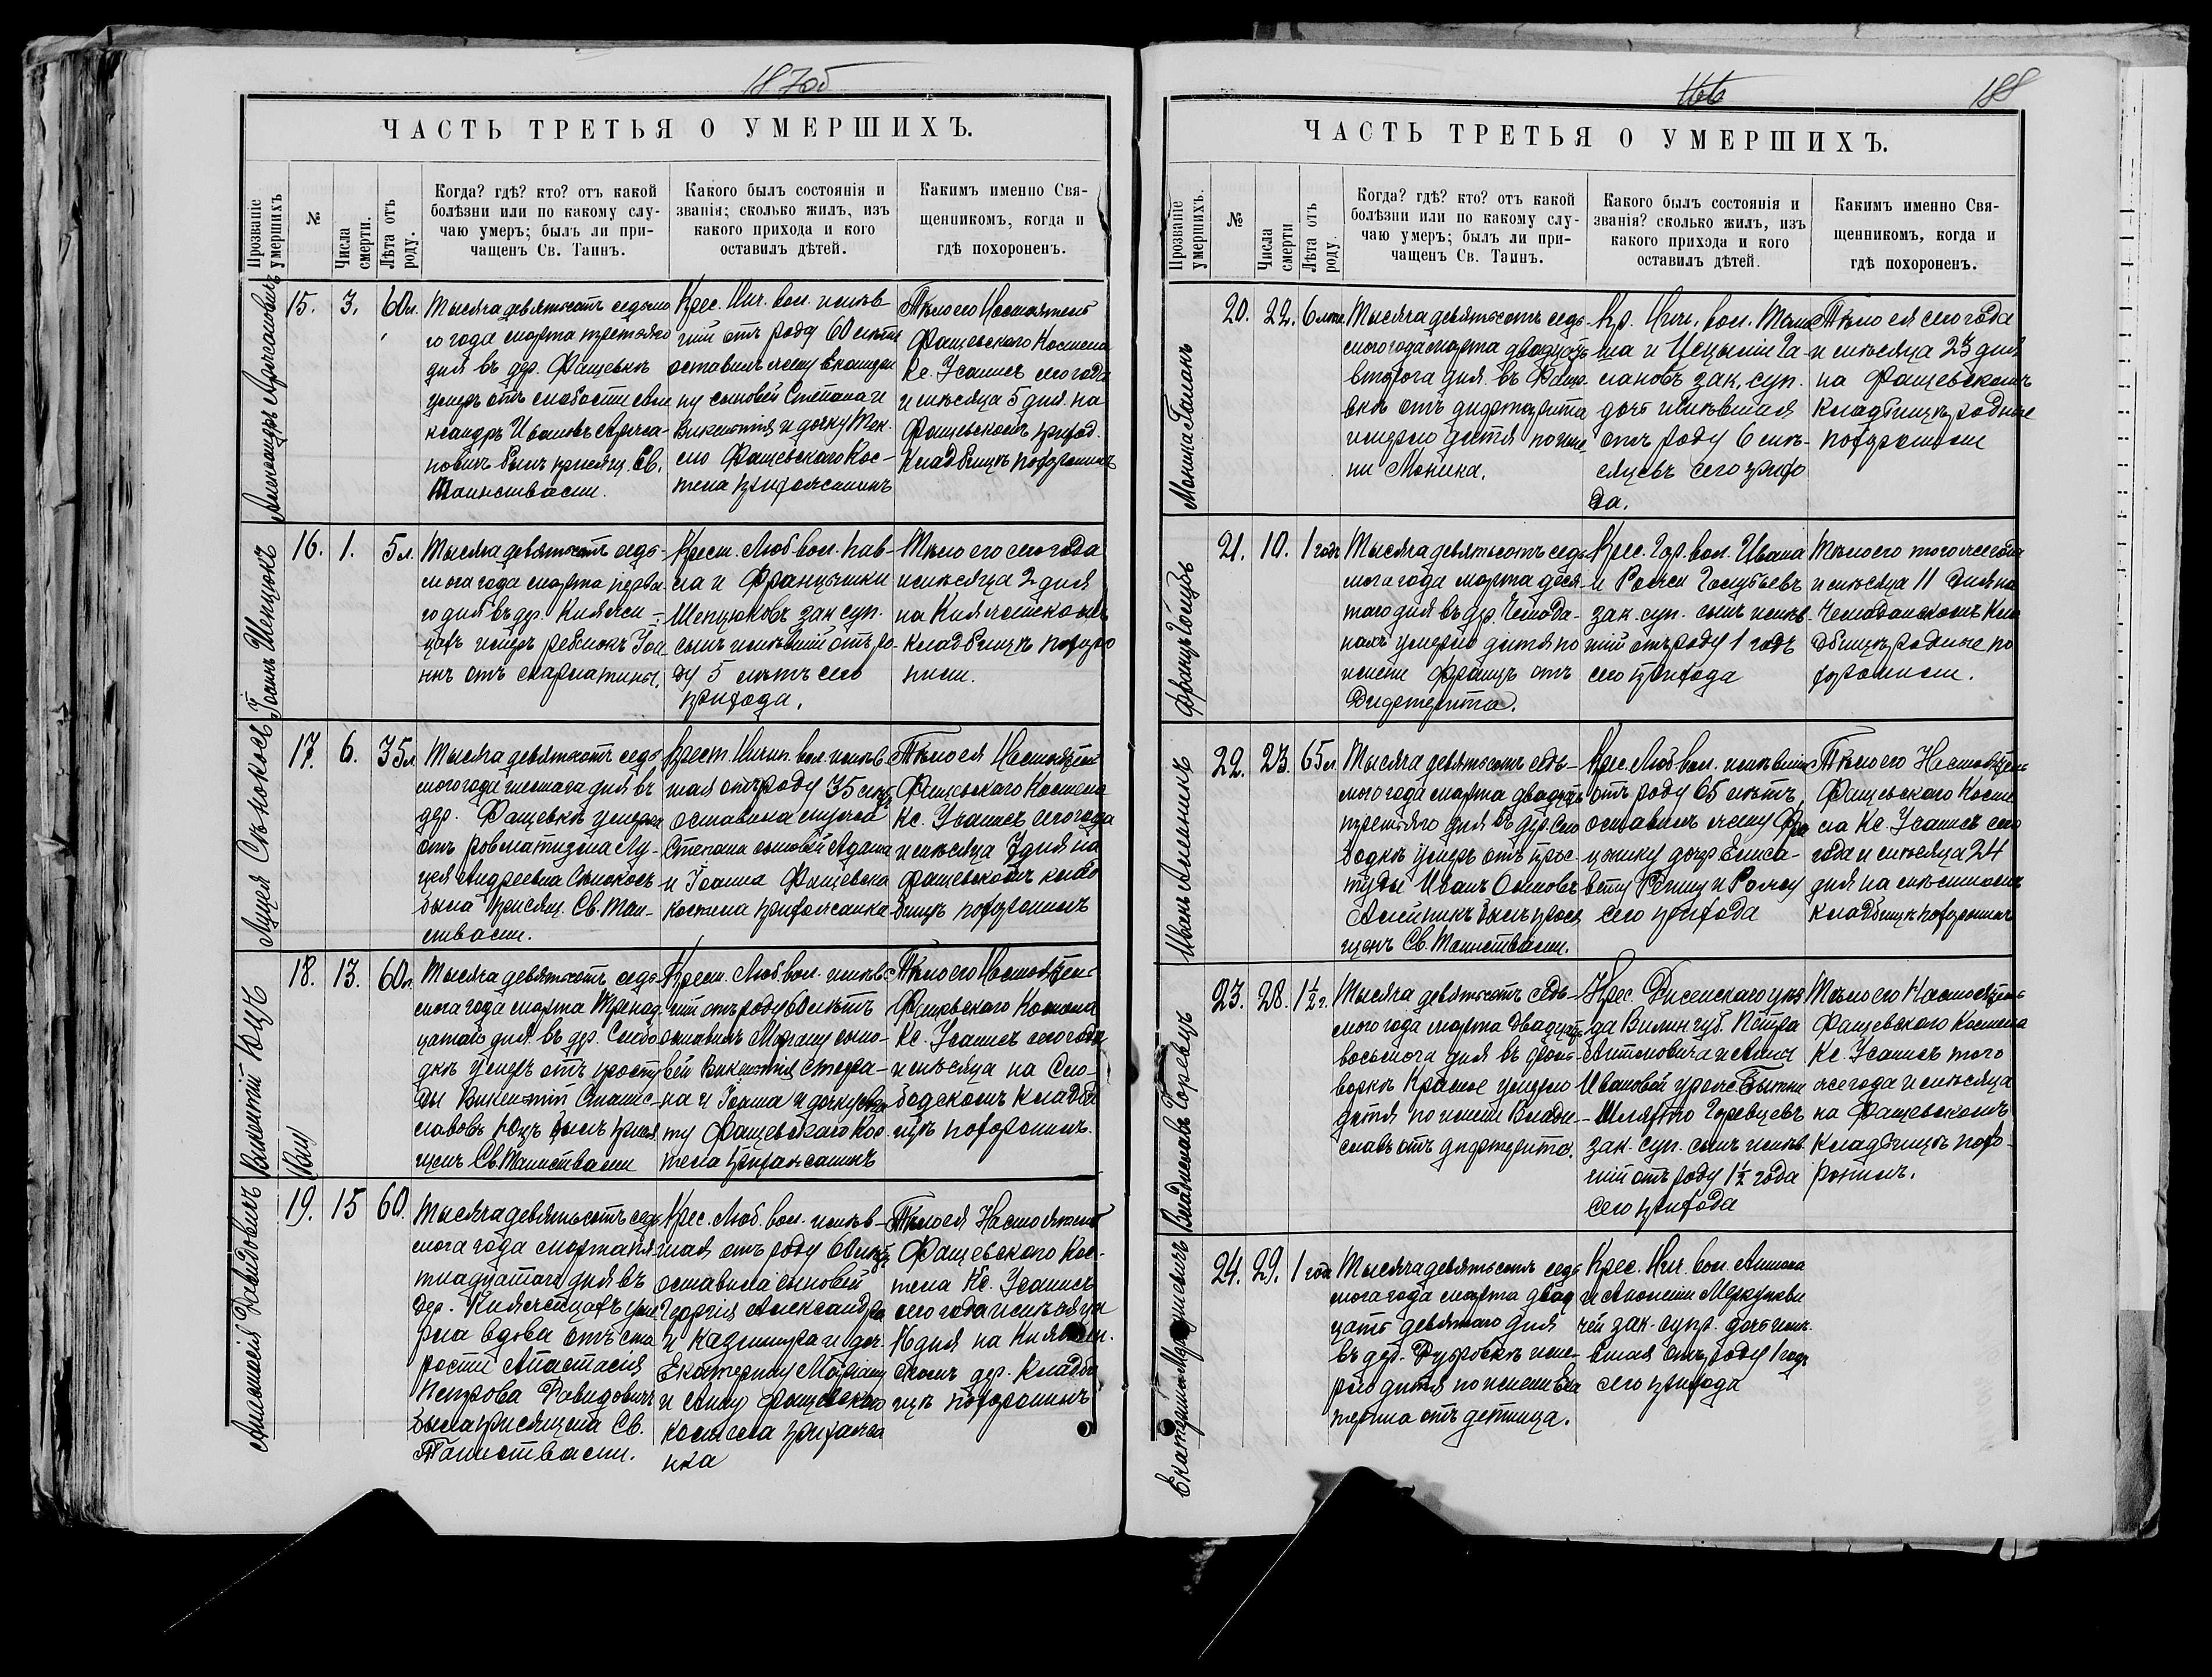 187об
ЧАСТЬ ТРЕТЬЯ О УМЕРШИХЪ.
Прозваніе умершихъ
№
Числа смерти.
Лѣта отъ роду.
Когда? гдѣ? кто? отъ какой
болѣзни или по какому слу-
чаю умеръ; былъ ли при-
чащенъ Св. Таинъ.
Какого былъ состоянія и
званія; сколько жилъ, изъ
какого прихода и кого
оставилъ дѣтей.
Какимъ именно Свя-
щенникомъ, когда и
гдѣ похороненъ.
Александръ
15.
3.
60 л.
Тысяча девятьсотъ седьмо
го года марта третьяго
дня въ дер. Фащевкѣ
умеръ отъ слабости Але
ксандръ Ивановъ
новичъ былъ приобщ. Св.
Таинствами.
Крес. вол. имѣв
шій отъ роду 60 лѣтъ
оставилъ жену
ну сыновей Степана и
Викентія и дочку
лю Фащевскаго Кос-
тела прихожанинъ
Тѣло его Настоятель
Фащевского Костела
Кс. сего года
и мѣсяца 5 дня на
Фащевскомъ приход.
кладбищѣ похоронилъ
Іоаннъ Шепцюкъ
16.
1.
5 л.
Тысяча девятьсотъ седь-
мога года марта перва
го дня въ дер. Княжи-
цахъ умеръ ребенокъ Іоа
ннъ отъ скарлатины.
Крест. Люб вол. Пав-
ла и Францишки
Шепцюковъ зак суп.
сынъ имѣвшій отъ ро
ду 5 лѣтъ сего
прихода.
Тѣло его сего года
и мѣсяца 2 дня
на Княжицкомъ
кладбищѣ похоро
нили.
Луція
17.
6.
35 л
Тысяча девятьсотъ седь
мого года шестога дня въ
дер. Фащевкѣ умерла
отъ ровматизма Лу-
ція Андреевна
была приобщ. Св. Таин-
ствами.
Крест. вол. имѣв-
шая отъ роду 35 лѣтъ
оставила мужа
Степана сыновей Адама
и Іоанна Фащевска
костела прихожанка
Тѣло ея Настоятель
Фащевского Костела
Кс. сего года
и мѣсяца 7 дня на
Фащевскомъ кладб
бищѣ похоронилъ
Викентій Юцъ
18.
13.
60 л.
Тысяча девятьсотъ седь
мога года марта тринад
цатаго дня въ дер. Слобо
дкѣ умеръ отъ просту
ды Викентій Станис-
лавовъ Юцъ былъ приоб
щенъ Св. Таинствами
Крест. Люб вол. имѣв
шій отъ роду 60 лѣтъ
оставилъ Маряну сыно-
вей Викентія Стефа-
на и Іоанна и дочку
ту Фащевскаго Кос
тела прихожанинъ
Тѣло его Настоятель
Фащевского Костела
Кс. сего года
и мѣсяца на Сло-
бодскомъ кладби
щѣ похоронилъ.
Анастасія Давидовичъ
19.
15
60.
Тысяча девятьсотъ седь
мога года марта пя
тнадцатага дня въ
дер. Княжицахъ уме
рла вдова отъ ста
рости Анастасія
Петрова Давидовичъ
была приобщена Св.
Таинствами.
Крес. Люб. вол. имѣв-
шая отъ роду 60 лѣтъ
оставила сыновей
Георгія Александра
и Казимира и доч.
Екатерину Маряну
и Анну Фащевскаго
костела прихожа
нка
Тѣло ея Настоятель
Фащевского Кос-
тела Кс.
сего года и мѣсяца
16 дня на
скомъ дер. кладби
щѣ похоронилъ
188
ЧАСТЬ ТРЕТЬЯ О УМЕРШИХЪ.
Прозваніе умершихъ.
№
Числа смерти
Лѣта отъ роду.
Когда? гдѣ? кто? отъ какой
болѣзни или по какому слу-
чаю умеръ; былъ ли при-
чащенъ Св. Таинъ.
Какого былъ состоянія и
званія? сколько жилъ, изъ
какого прихода и кого
оставилъ дѣтей.
Какимъ именно Свя-
щенникомъ, когда и
гдѣ похороненъ.
Моника Галанъ
20.
22.
6 мѣс.
Тысяча девятьсотъ седь-
мого года марта двадцать
второга дня въ Фаще-
вкѣ отъ дифтерита
умерло дитя по име-
ни Моника.
Кр. вол.
и Га-
лановъ зак. суп.
дочь имѣвшая
отъ роду 6 мѣ-
сяцевъ сего прихо
да.
Тѣло ея сего года
и мѣсяца 23 дня
на Фащевскомъ
кладбищѣ родные
похоронили
Францъ Голубъ
21.
10.
1 годъ
Тысяча девятьсотъ седь
мога года марта деся-
таго дня въ дер. Чемода-
нахъ умерло дитя по
имени Францъ отъ
Дифтерита.
Крес. Гор. вол. Ивана
и Голубьевъ
зак. суп. сынъ имѣв-
шій отъ роду 1 годъ
сего прихода
Тѣло его того же года
и мѣсяца 11 дня на
Чемоданскомъ кла
дбищѣ родные по
хоронили.
Иванъ Алейникъ
22.
23.
65 л.
Тысяча девятьсотъ седь-
мого года марта двадцать
третьяго дня въ дер. Сло
бодкѣ умеръ отъ прос-
туды Иванъ Осиповъ
Алейникъ былъ приоб
щенъ Св. Таинствами.
Крес. Люб вол. имѣвшій
отъ роду 65 лѣтъ
оставилъ жену Фра
цишку дочр. Елиса-
вету Регину и
сего прихода
Тѣло его Настоятель
Фащевского Косте
ла Кс. сего
года и мѣсяца 24
дня на мѣстномъ
кладбищѣ похоронилъ
Владиславъ Горевецъ
23.
28.
1½ г.
Тысяча девятьсотъ седь-
мого года марта двадцать
восьмога дня въ фоль-
варкѣ Красное умерло
дитя по имени Влади-
славъ отъ дифтерита.
Крес. Дисенскаго уѣз
да Вилен губ. Петра
Антоновича и Анны
Ивановой урожд.
Горевцевъ
зак. суп. сынъ имѣв
шій отъ роду 1½ года
сего прихода
Тѣло его Настоятель
Фащевского Костела
Кс. того
же года и мѣсяца
на Фащевскомъ
кладбищѣ похо-
ронилъ.
Екатерина
24.
29.
1 годъ
Тысяча девятьсотъ седь
мога года марта двад
цать девятого дня
въ дер. уме-
рло дитя по имени Ека
терина отъ
Крес. вол. Антона
и
чей зак. супр. дочь имѣ-
вшая отъ роду 1 годъ
сего прихода